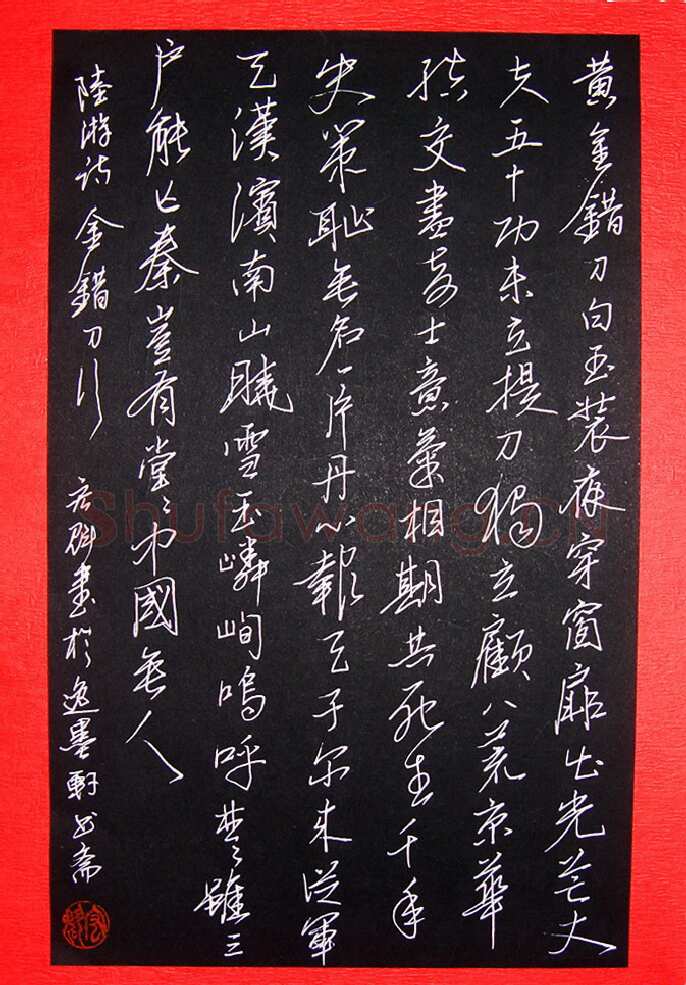 黄金錯刀白玉装夜穿窗扉出光芒丈
夫五十功未立提刀獨立顧八荒京華
結交盡奇士意氣相期共死生千年
史策恥無名一片丹心報天子尔来從軍
天漢濱南山曉雪玉嶙峋嗚呼楚雖三
户能亡秦豈有堂〻中國無人
陸游诗金錯刀行 書於逸墨軒书斋
Shufawang.cn